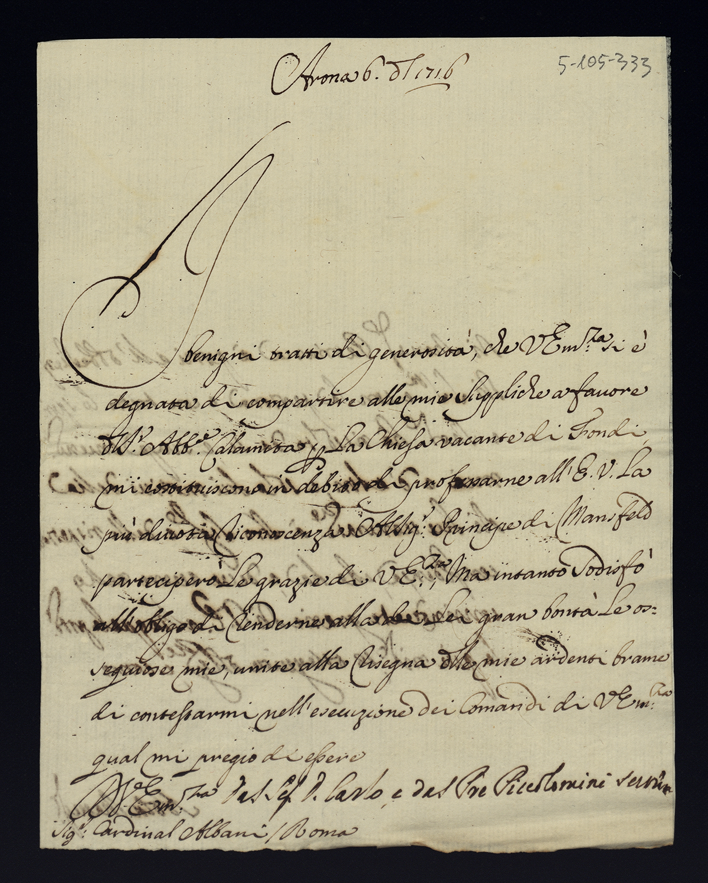 Arona 6. 1716
5-105-333
I benigni tratti di generosità, che V Em.za si è
degnata di compartire alle mie Suppliche a favore
Abb.e Calamita La Chiesa vacante di Fondi
mi costituiscono in debito di professarne all' E. V. La
più divota Riconoscenza Principe di Mansfeld
parteciperò Le grazie di V E.za, Ma intanto Sodisfò
all' obligo di Renderne alla di Lei gran bontà Le os=
sequiose mie, unite alla Rasegna delle mie ardenti brame
di contestarmi nell' esecuzione dei Comandi di V Em.za
qual mi pregio di essere
Em.za Carlo, e Piccolomini
Sig.r Cardinal Albani / Roma